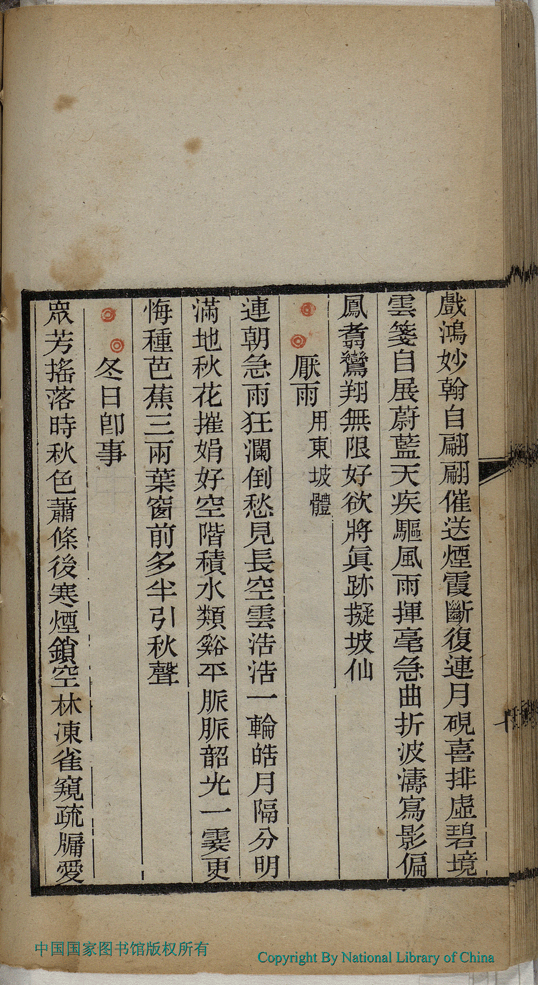 戲鴻妙翰自翩翩催送煙霞斷復連月硯喜排虛碧境
雲箋自展蔚藍天疾驅風雨揮毫急曲折波濤寫影偏
鳳翥鸞翔無限好欲將眞跡擬坡仙
厭雨 用東坡體
連朝急雨狂瀾倒愁見長空雲浩浩一輪皓月隔分明
滿地秋花摧娟好空階積水類谿平脈脈韶光一霎更
悔種芭蕉三兩葉窗前多半引秋聲
冬日卽事
眾芳搖落時秋色蕭條後寒煙鎖空林凍雀窺疏牖愛
中国国家图书馆版权所有
Copyright By National Library of China